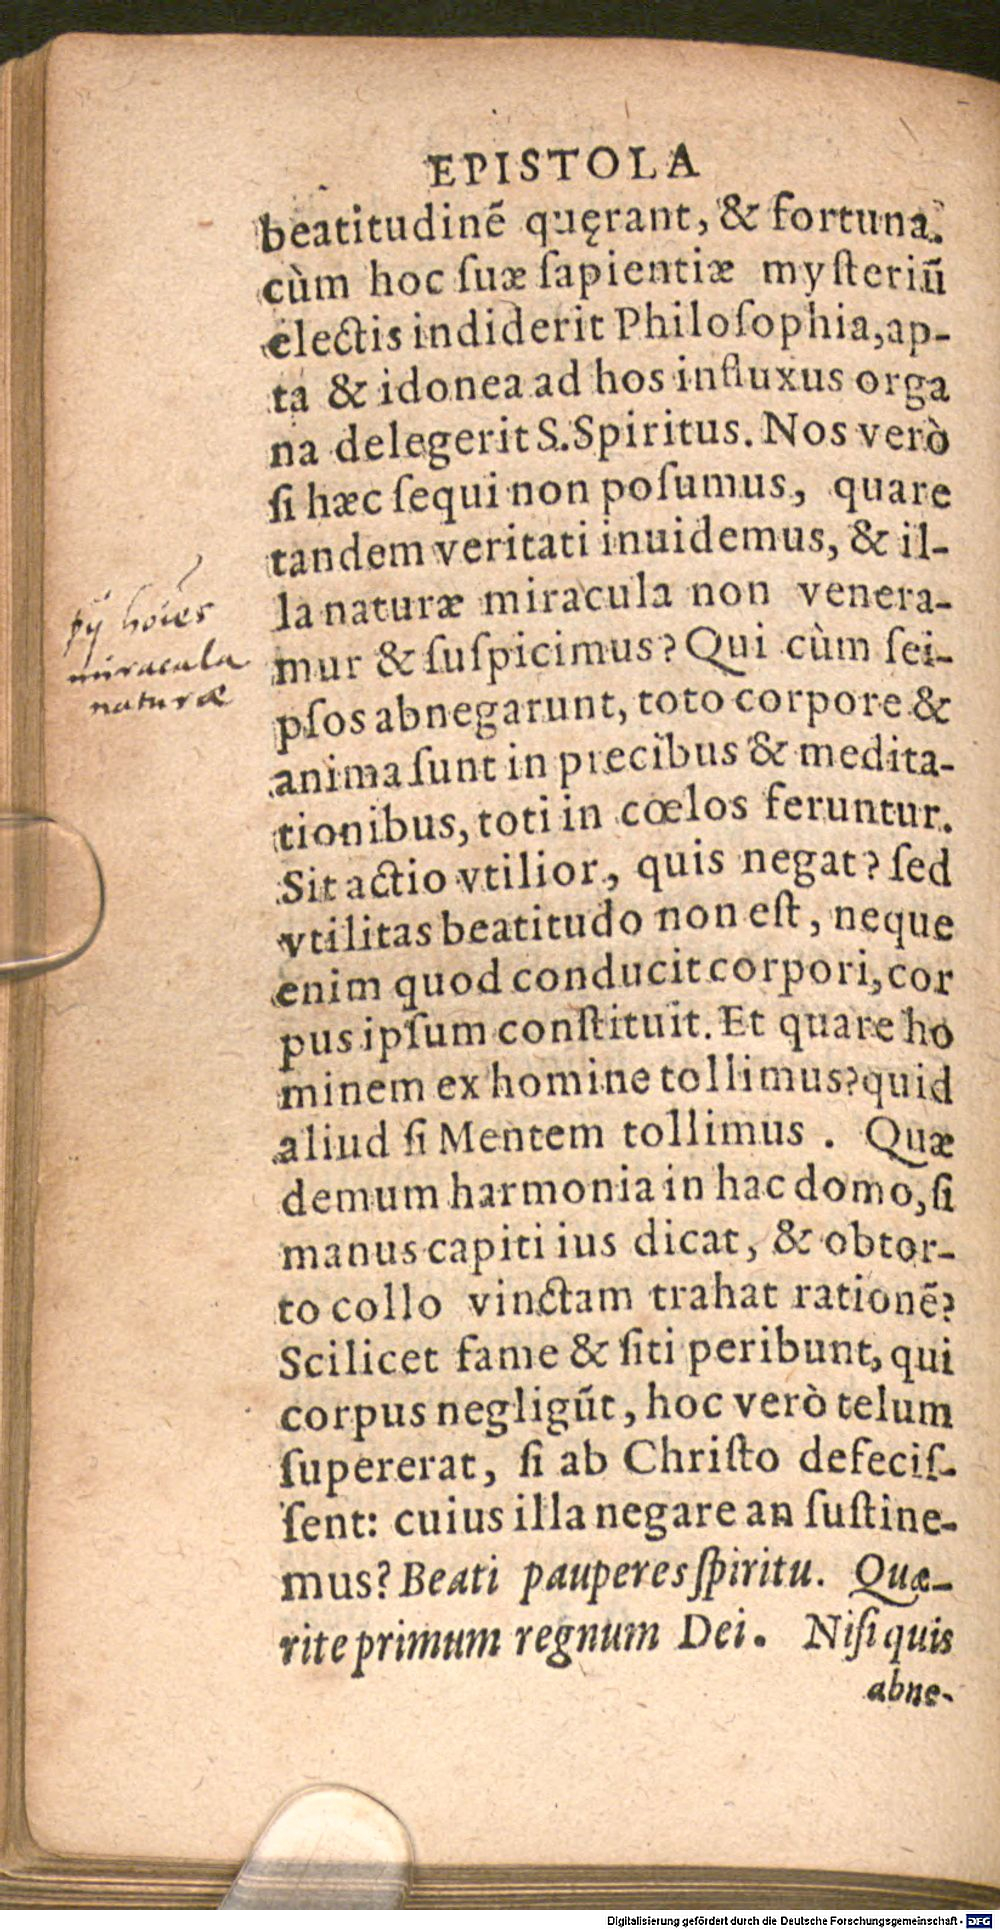 EPISTOLA
beatitudinẽ quęrant, & fortuna.
cùm hoc ſuæ ſapientiæ myſteriũ
electis indiderit Philoſophia, ap-
ta & idonea ad hos influxus orga
na delegerit S. Spiritus. Nos verò
ſi hæc ſequi non poſumus, quare
tandem veritati inuidemus, & il-
la naturæ miracula non venera-
pij hoı̃es
miracula
naturæ
mur & ſuſpicimus? Qui cùm ſei-
pſos abnegarunt, toto corpore &
anima ſunt in precibus & medita-
tionibus, toti in cœlos feruntur.
Sit actio vtilior, quis negat? ſed
vtilitas beatitudo non eſt, neque
enim quod conducit corpori, cor
pus ipſum conſtituit. Et quare ho
minem ex homine tollimus? quid
aliud ſi Mentem tollimus. Quæ
demum harmonia in hac domo, ſi
manus capiti ius dicat, & obtor-
to collo vinctam trahat rationẽ?
Scilicet fame & ſiti peribunt, qui
corpus negligũt, hoc verò telum
ſupererat, ſi ab Chriſto defeciſ-
ſent: cuius illa negare an ſuſtine-
mus? Beati pauperes ſpiritu. Quæ-
rite primum regnum Dei. Niſi quis
abne-
Digitalisierung gefördert durch die Deutsche Forschungsgemeinschaft - DFG